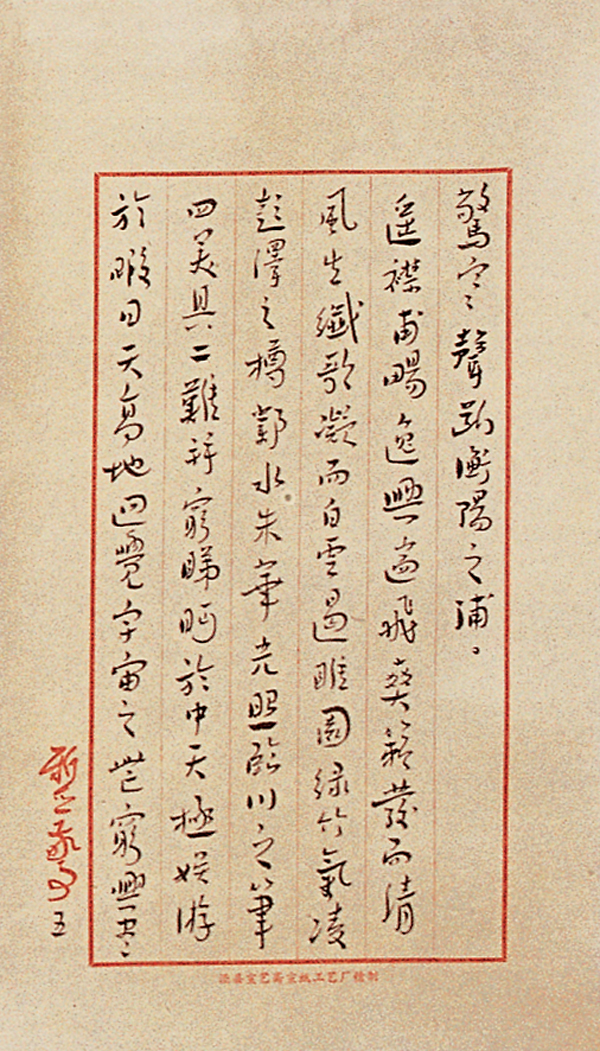 驚寒聲斷衡陽之浦
遥襟甫暢逸興遄飛爽籟發而清
風生纖歌凝而白雲遏睢園緑竹氣凌
彭澤之樽鄴水朱華光照臨川之筆
四美具二難并窮睇眄於中天極娱游
於暇日天高地迥覺宇宙之無窮興盡
五
泾县宣艺斋宣纸工艺厂精制